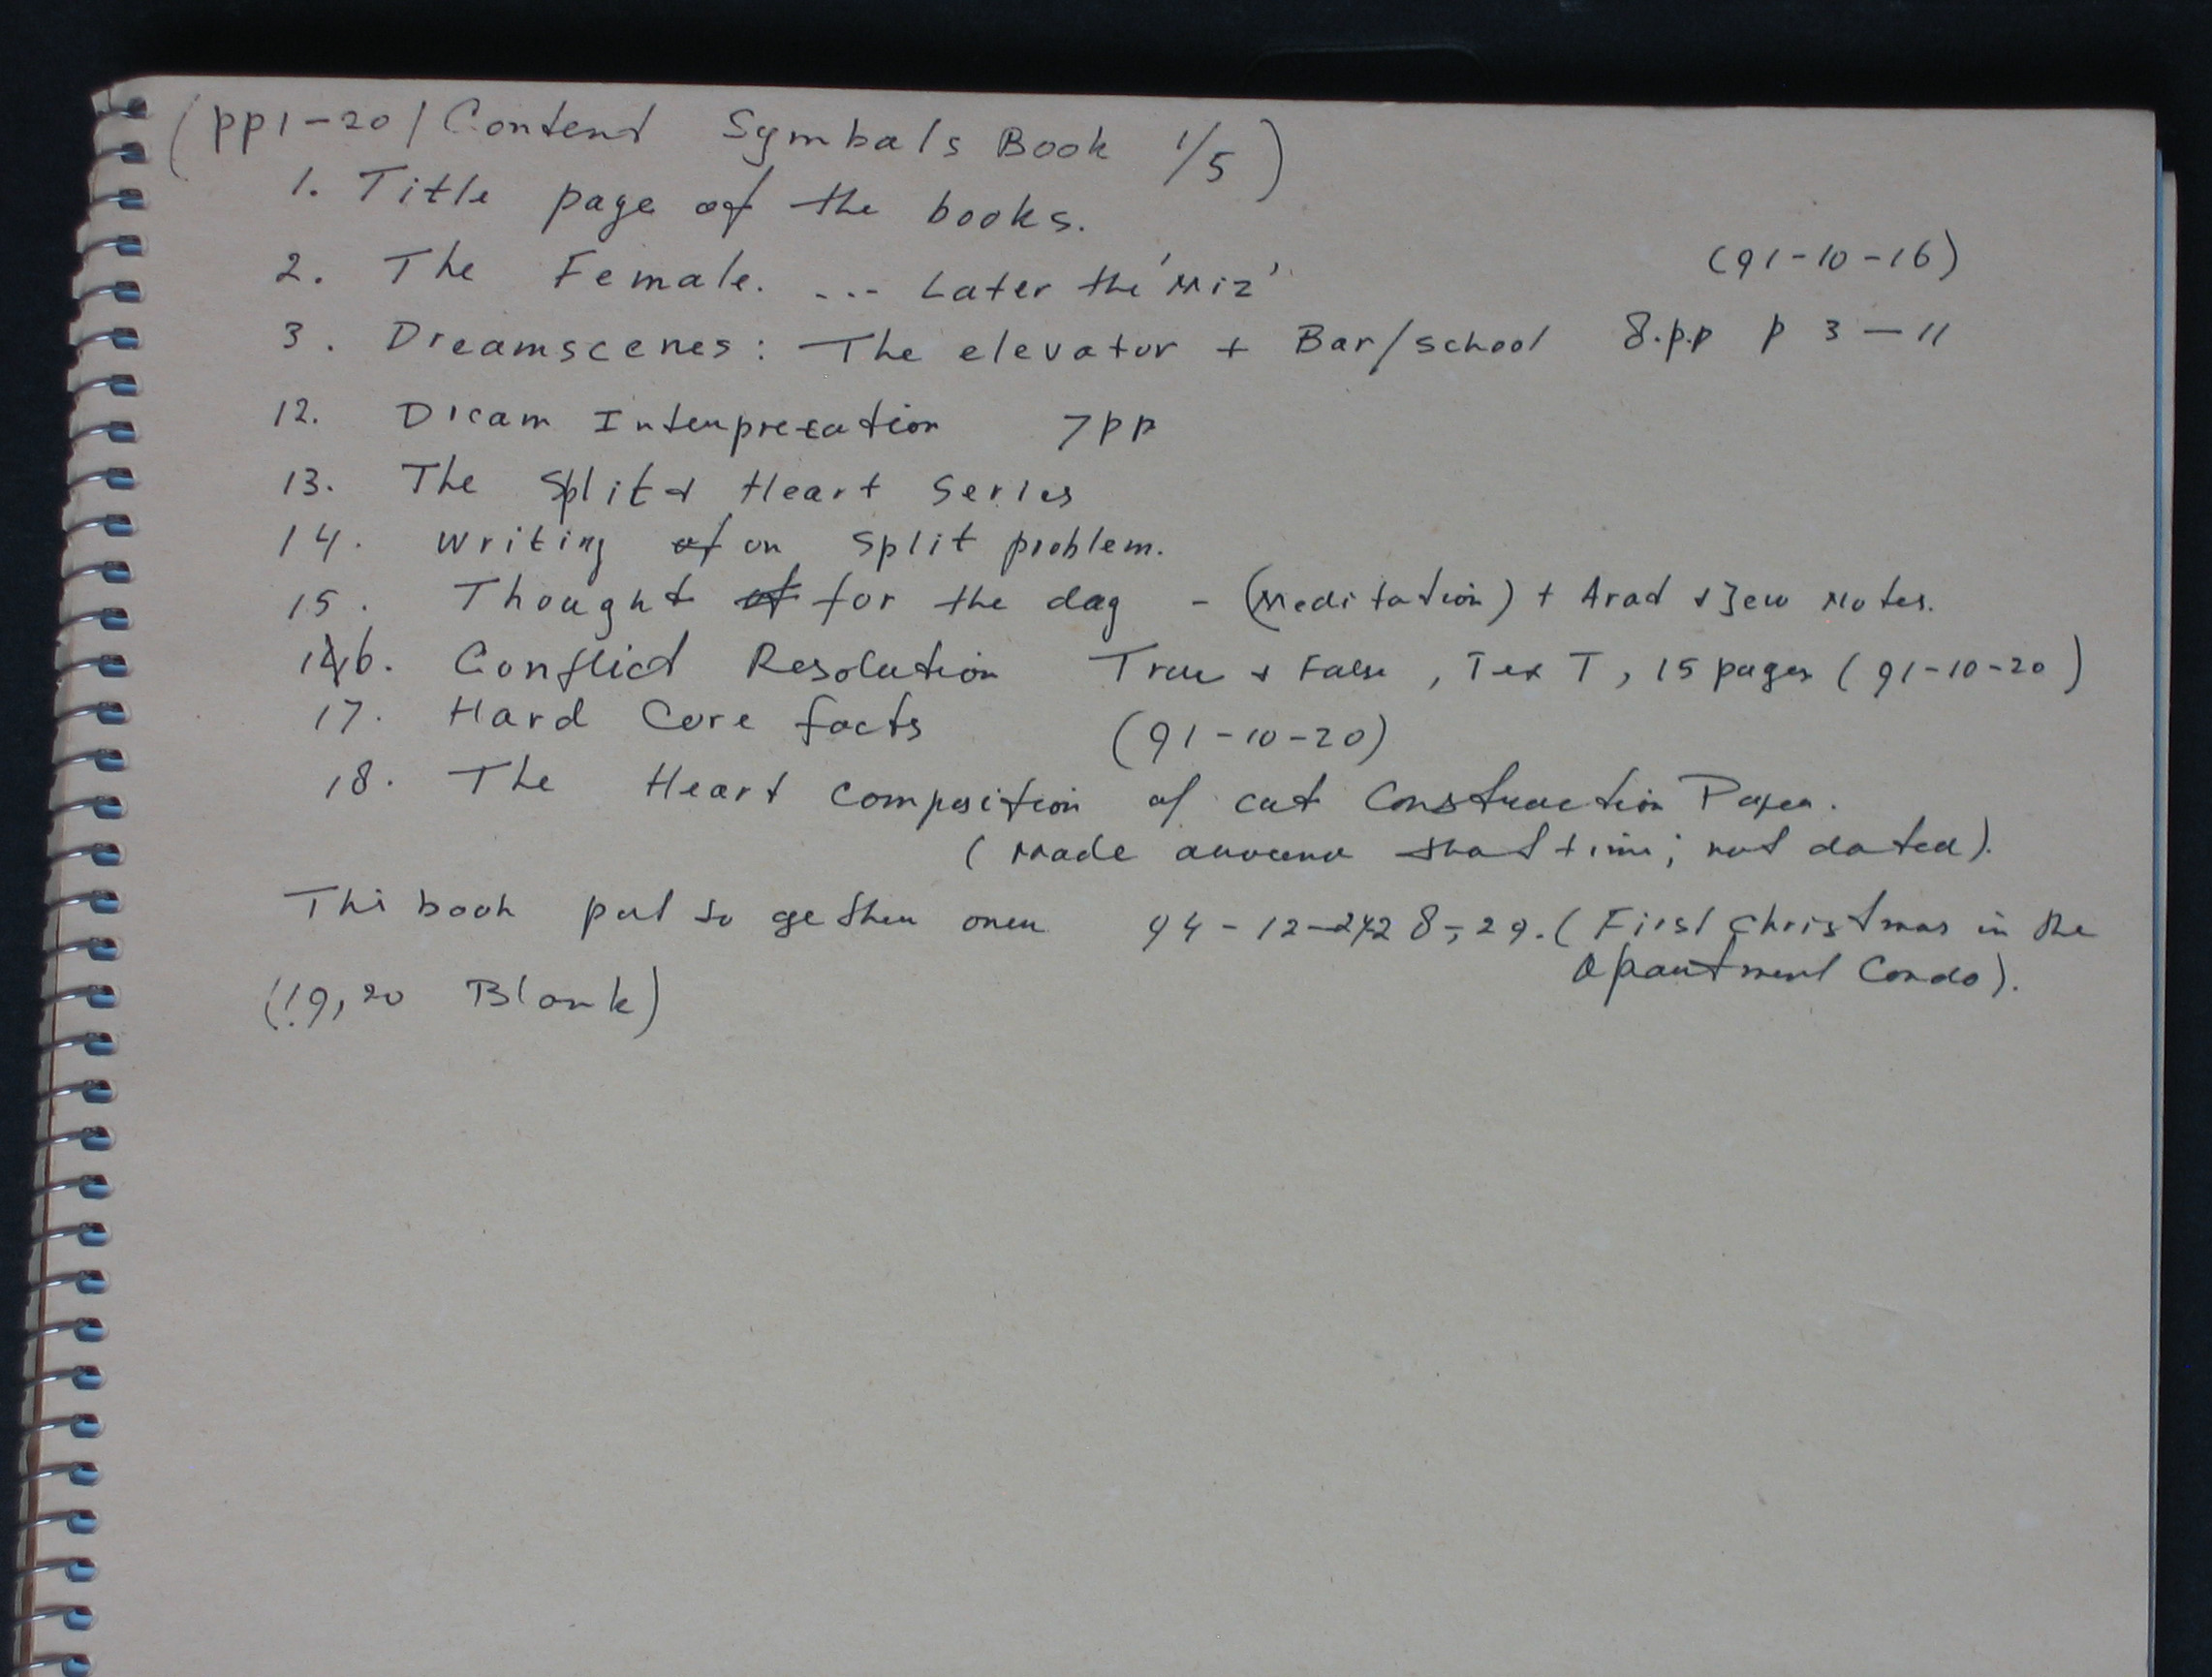 (pp1-20/Content Symbols Book 1/5)
1. Title page of the books.
2. The Female. ... Later the 'Miz' (91-10-16)
3. Dreamscenes: The elevator + Bar/school 8.p.p p 3-11
12. Dream Interpretation 7pp
13. The Split Heart Series
14. Writing of on split problem.
15. Thought of for the day - (Meditation) + Arad + Jew Notes.
16. Conflict Resolution True + False, Text, 15 pages (91-10-20)
17. Hard Core facts (91-10-20)
18. The Heart composition of cut Construction Paper.
(Made around that time; not dated).
This book put together over 94-12-28-29. (First Christmas in the
Apartment Condo).
(19,20 Blank)